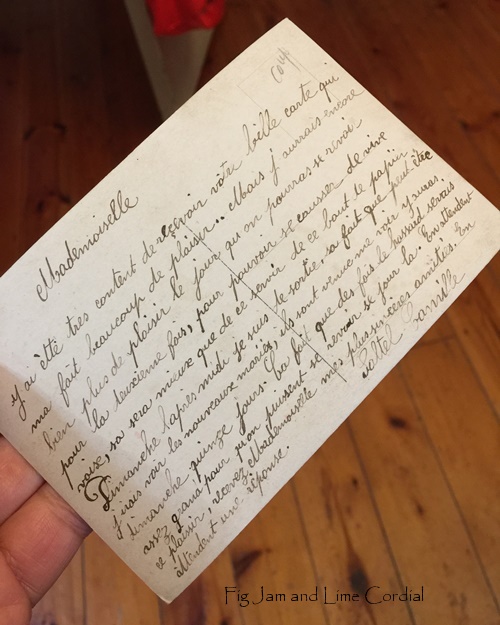 Mademoiselle
j'ai été tres content de recevoir votre belle carte qui
ma fait beaucoup de plaisir.. Mais j'aurais encore
bien plus de plaisir le jour qu'on pourras se revoir
pour la deuxieme fois, pour pouvoir se causser de vive
voix, sa sera mieux que de ce servir de ce bout de papier
Dimanche l'apres midi je suis de sortie, sa fait que peut être
j'irais voir les nouveaux mariés, ils sont venue me voir
dimanche quinze jours. Sa fait que des fois le hussard serais
assez grans pour qu'on puissent se revoir se jour la. En attendent
ce plaisir, recevez Mademoiselle mes plus sinceres amitiés. En
attendent une réponse.
Camille
Fig Jam and Lime Cordial